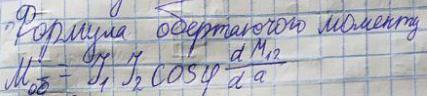 Формула обертаючого моменту
Mоб = I₁ I₂ cosφ d M₁₂ / d a